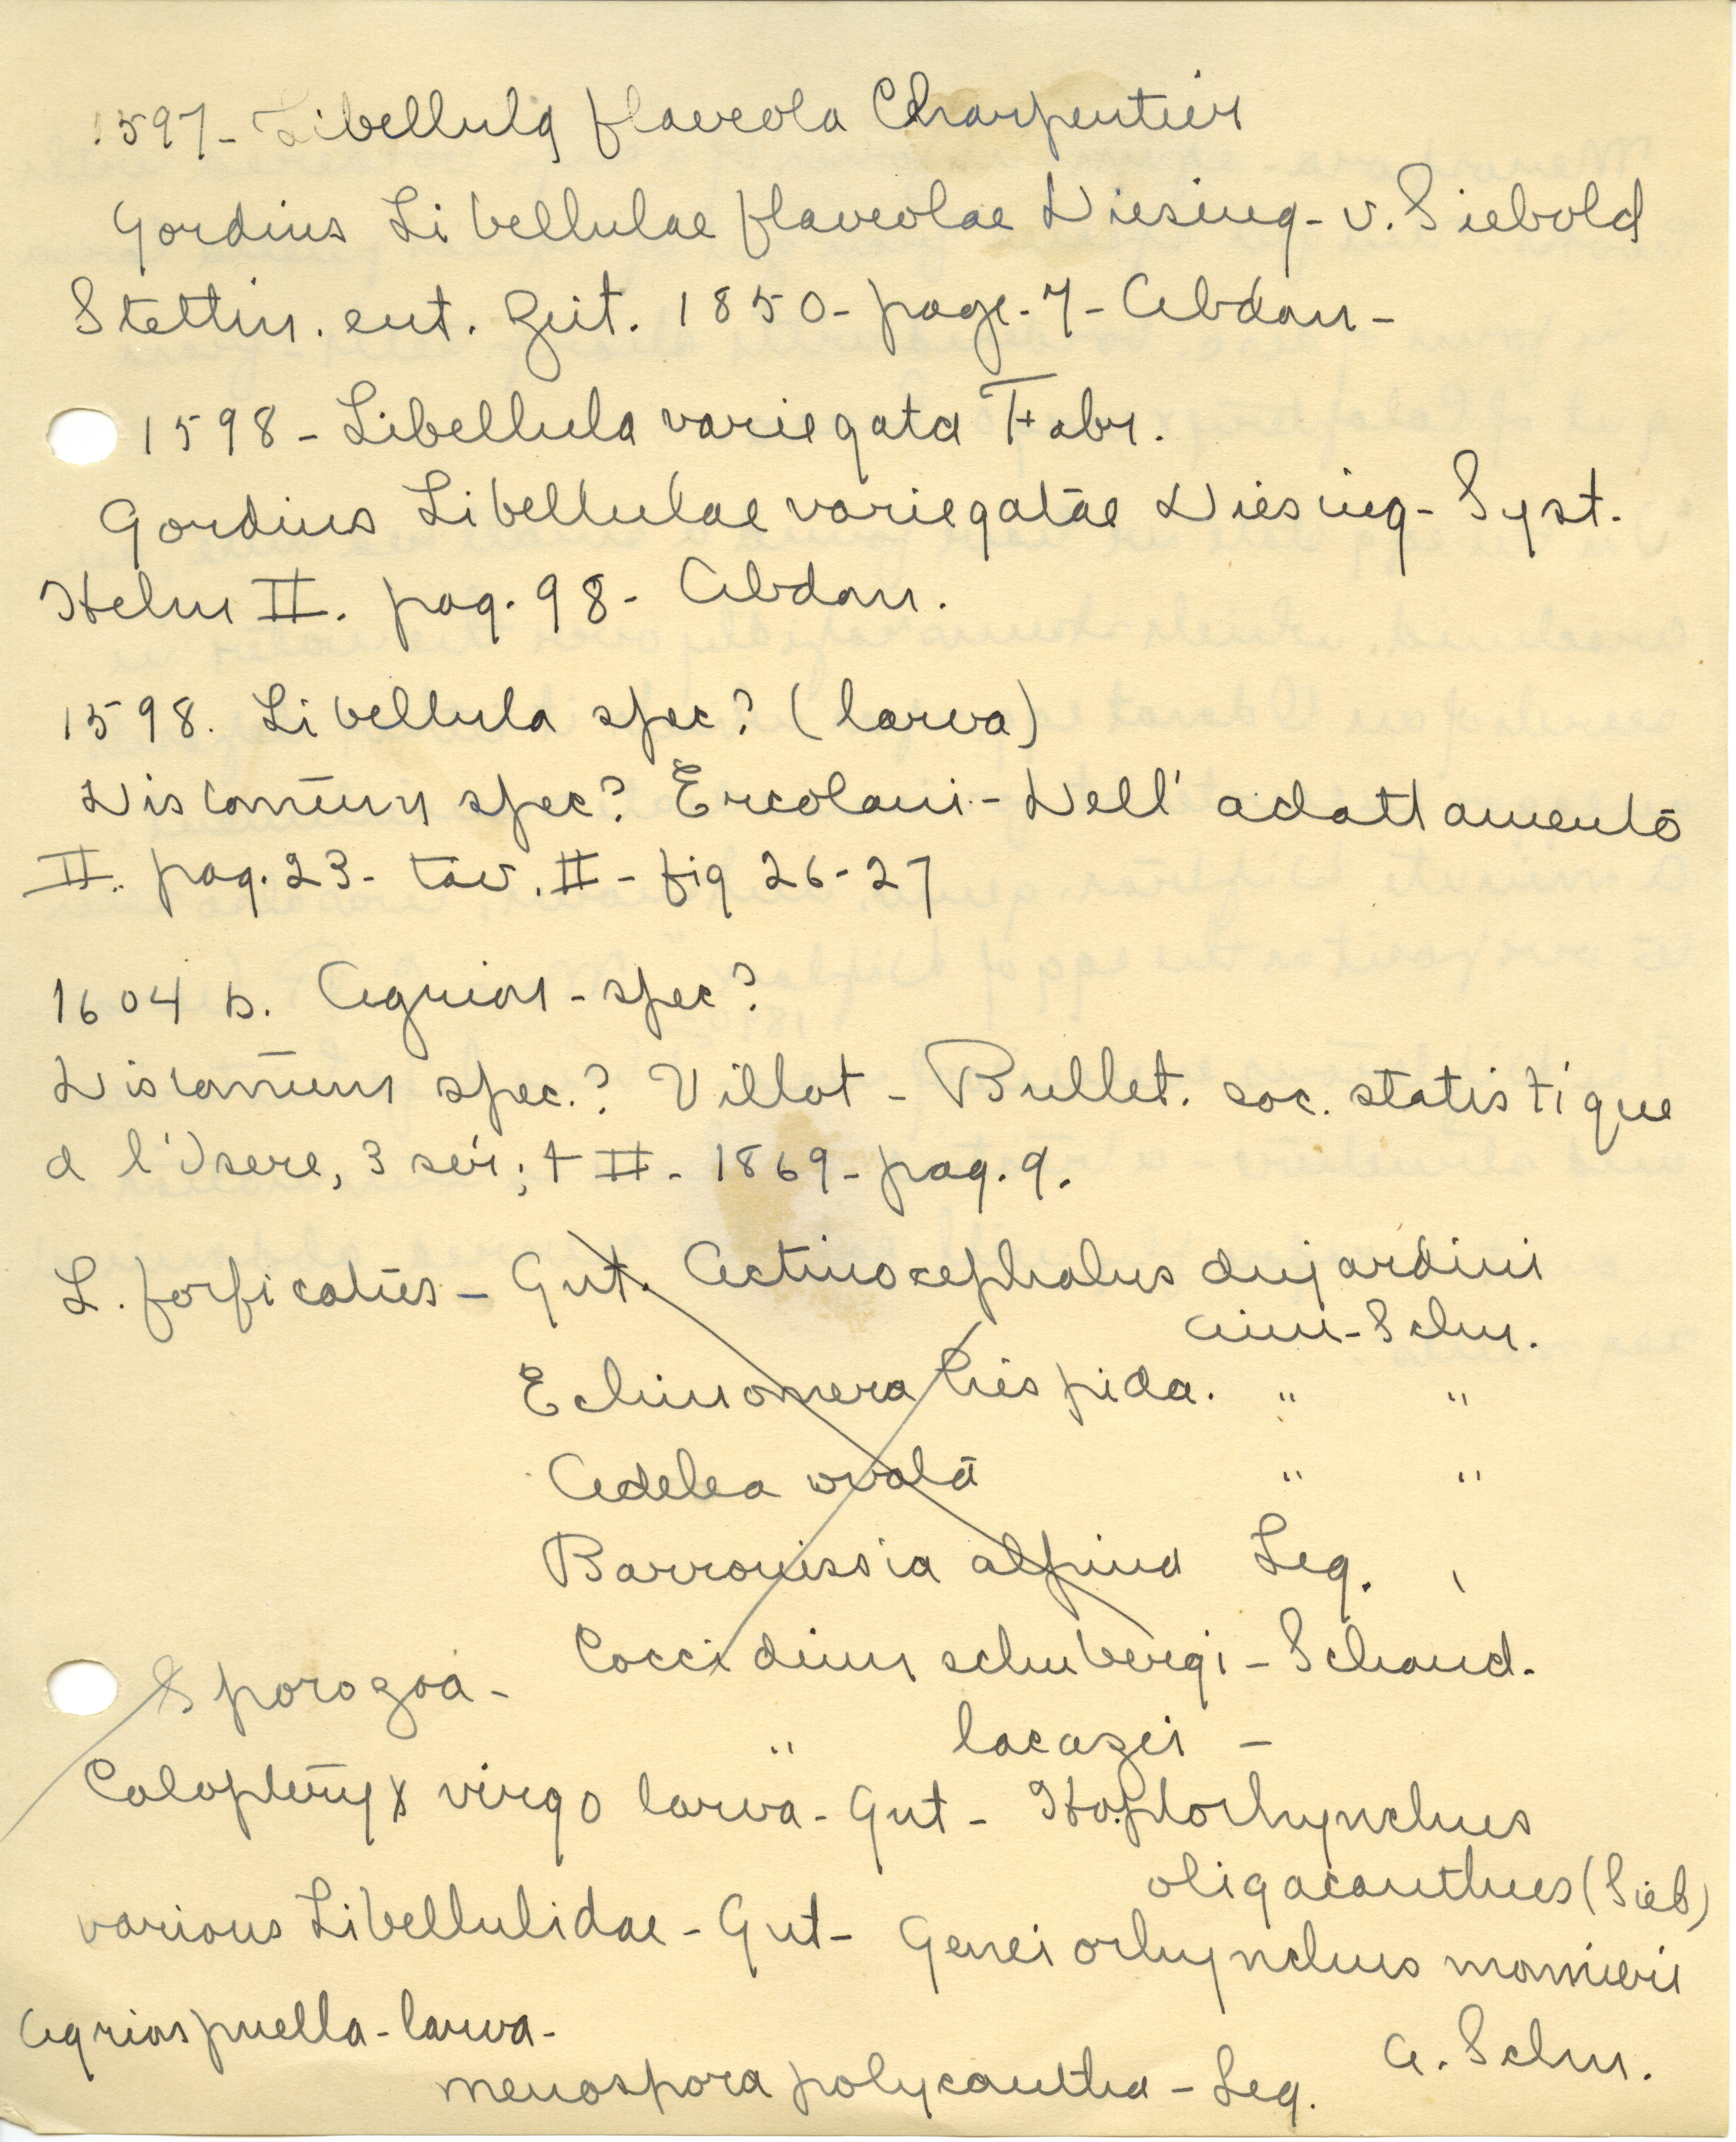 1597- Libellula flaveola Charpentier
Gordius Libellulae flaveolae Diesing- v. Siebold
Stettin. ent. Zeit. 1850- page. 7- Abdom-
1598- Libellula variegata Fabr.
Gordius Libellulae variegatae Diesing- Syst.
Helm II. pag. 98- Abdom.
1598. Libellula spec? (larva)
Distomum spec? Ercolani- Dell' adattamento
II. pag. 23- tav. II- fig 26-27
1604 b. Agrion- spec?
Distomum spec.? Villot- Bullet. soc. statistique
d l'Isere, 3 sér; t II- 1869- pag. 9.
L. forficatus- Gut. Actinocephalus dujardini
Aim-Schn.
Echinomera hispida. " "
Adelea ovata " "
Barroussia alpina Leg.
Coccidium schubergi- Schaud.
Sporozoa-
" lacazei -
Calopteryx virgo larva- Gut- Hoplorhynchus
oligacanthus (Sieb)
various Libellulidae- Gut- Geneiorhynchus monnieri
A. Schn.
Agrion puella- larva-
menospora polycantha- Leg.